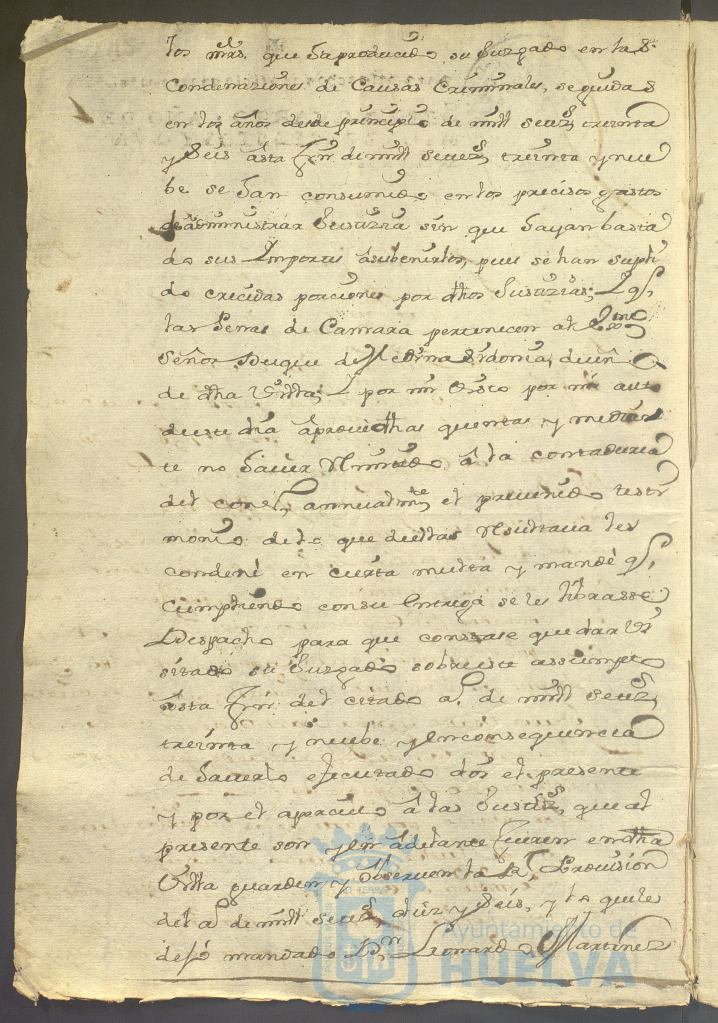 los mrs. que ha producido su Juzgado en las
Condenaziones de Causas Criminales, seguidas
en los años desde principio de mill setezs. treinta
y seis asta fin de mill setezs. treinta y nue
be se han consumido en los precisos gastos
de administrar Justizia sin que hayan basta
do sus Importes a subenirlos, pues se han supli
do crecidas porciones por dhos Justizias; Y qe.
las Penas de Camara pertenecen al Exmo.
Señor Duque de Medina Sidonia, dueño
de dha Villa; Y por mi visto por mi auto
de este dia aprove dhas quentas y median
te no haver remitido a la contaduria
del consexo, annualmte. el prevenido testi
monio de lo que de ellas resultava les
condenè en cierta multa y mandè qe.
Cumpliendo con su Entrega se les librasse
Despacho para que conste quedar Vi
sitado su Juzgado sobre este assumpto
asta fin del citado aº. de mill setezs.
treinta y nuebe y en consequencia
de haverlo ejecutado doi el presente
y por el aprecivo a las Justizs. que al
presente son y en adelante fueren en dha
Villa guarden y observen la Rl. Provision
del aº. de mill setezs. diez y seis, y lo que le
dejó mandado Dn. Leonardo Martinez
Ayuntamiento de
HUELVA